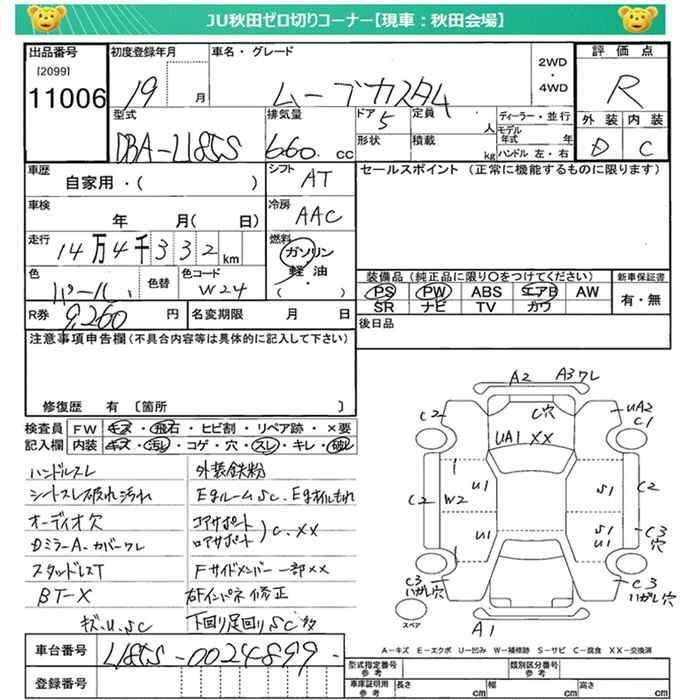 JU秋田ゼロ切りコーナー【現車:秋田会場】
出品番号
[2099]
11006
初度登録年月
19 月
車名・グレード
ムーブカスタム
2WD
・
4WD
評価点
R
外装 内装
D C
型式
DBA-L185S
排気量
660. cc
ドア
5
形状
定員
人
積載
kg
ディーラー・並行
モデル
年式 年
ハンドル 左・右
車歴
自家用・( )
シフト
AT
セールスポイント (正常に機能するものに限ります)
車検
年 月( 日)
冷房
AAC
走行
14万4千332 km
燃料
ガソリン
軽油
( )
色
パール.
色替
色コード
W24
装備品(純正品に限り○をつけてください)
PS PW ABS エアB AW
SR ナビ TV カワ
新車保証書
有・無
R券 9,260 円
名変期限 月 日
後日品
注意事項申告欄(不具合内容等は具体的に記入して下さい)
修復歴 有 〔箇所 〕
検査員 FW キズ・飛石・ヒビ割・リペア跡・×要
記入欄 内装 キズ・汚レ・コゲ・穴・スレ・キレ・破レ
ハンドルスレ
シートスレ破れ汚れ
オーディオ欠
DミラーA.カバーワレ
スタッドレスT
BT-X
キズ.U.SC
外装鉄粉
EgルームSC.Egオイルもれ
コアサポート
ロアサポート ) C.XX
Fサイドメンバー一部××
右Fインパネ修正
下回り足回りSC多
A2 A3ワレ
C2 C穴 UA2
UA1 XX C1
U1 S1
C2 W2 C2
U1 S1
U1 C3
穴
C3 C3
いがし穴 いがし穴
スペア
A1
A-キズ E-エクボ U-凹み W-補修跡 S-サビ C-腐食 XX-交換済
車台番号 L185S-0024899.
登録番号
型式指定番号
参考
類別区分番号
参考
車庫証明用
参考
長さ cm 幅 cm 高さ cm